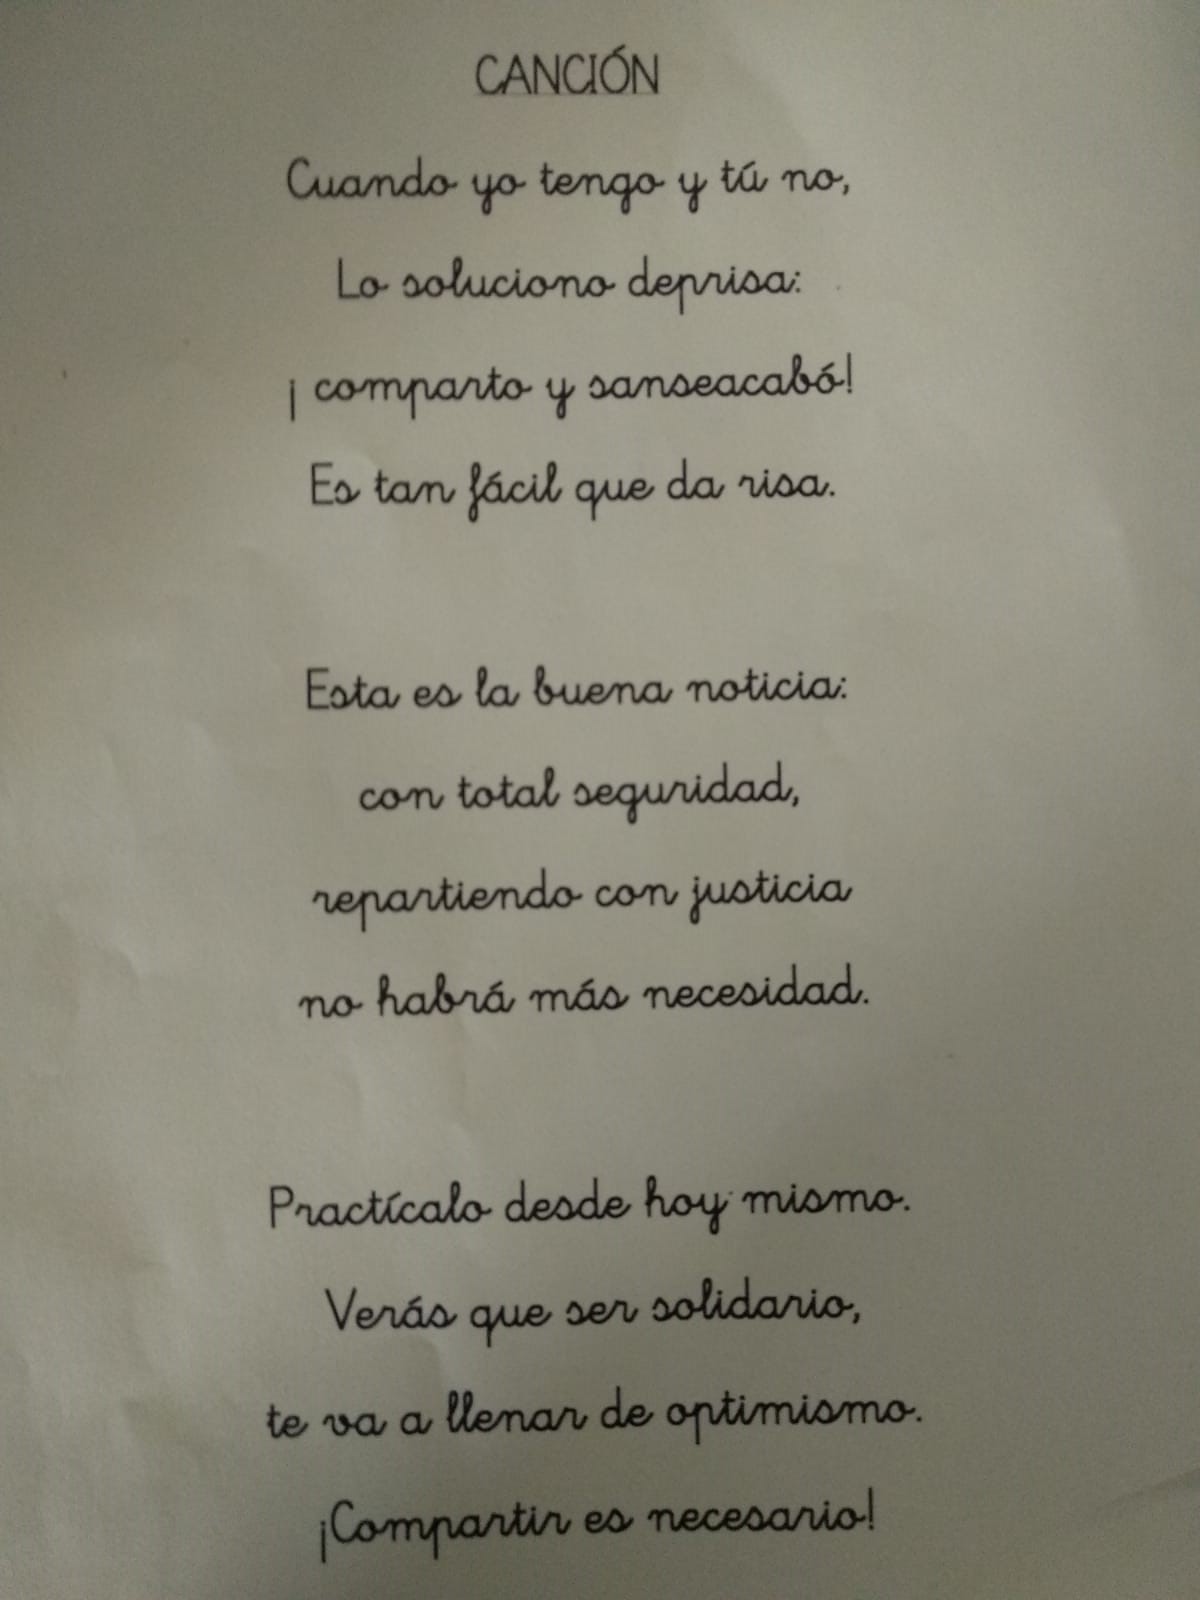 CANCIÓN
Cuando yo tengo y tú no,
Lo soluciono deprisa:
¡ comparto y sanseacabó!
Es tan fácil que da risa.
Esta es la buena noticia:
con total seguridad,
repartiendo con justicia
no habrá más necesidad.
Practícalo desde hoy mismo.
Verás que ser solidario,
te va a llenar de optimismo.
¡Compartir es necesario!